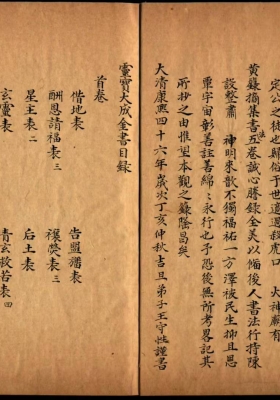 定公之徒也歸依于世道遇殺虎口 大神廟有
黃籙摘集書五卷誠心謄錄全美以備後人書法行持陳
設整肅 神明來歆不獨福祐一方澤被民生抑且恩
覃宇宙彰善註善綿綿永行也予恐後無所考畧記其
所抄之由惟望本觀之籙隆昌矣
大清康熙四十六年歲次丁亥仲秋吉旦弟子王守性謹書
靈寶大成金書目錄
首卷
借地表 告盟潘表
酬恩請福表三 禳熒表三
星主表二 后土表
玄靈表 青玄救苦表四